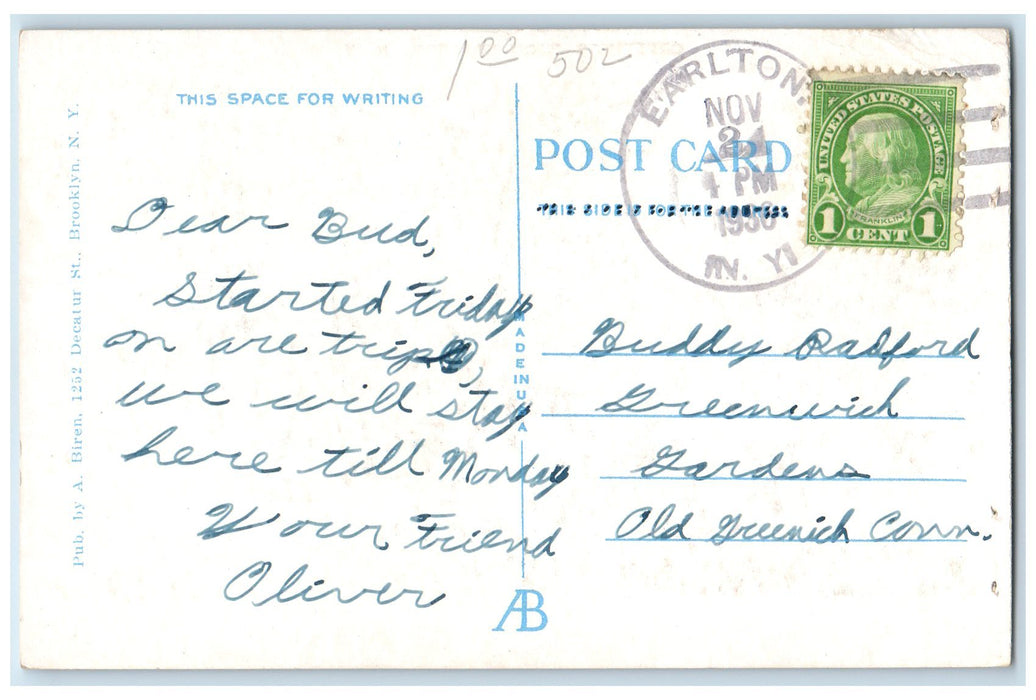 1 00 502
THIS SPACE FOR WRITING
Pub. by A. Biren, 1252 Decatur St., Brooklyn, N. Y.
Dear Bud,
Started Friday
on are trip,
we will stay
here till Monday
Your Friend
Oliver
MADE IN U.S.A
AB
POST CARD
THIS SIDE IS FOR THE ADDRESS
EARLTON,
NOV
4 PM
N. Y.
UNITED STATES POSTAGE
FRANKLIN
1 CENT 1
Buddy Radford
Greenwich
Gardens
Old Greenich Conn.